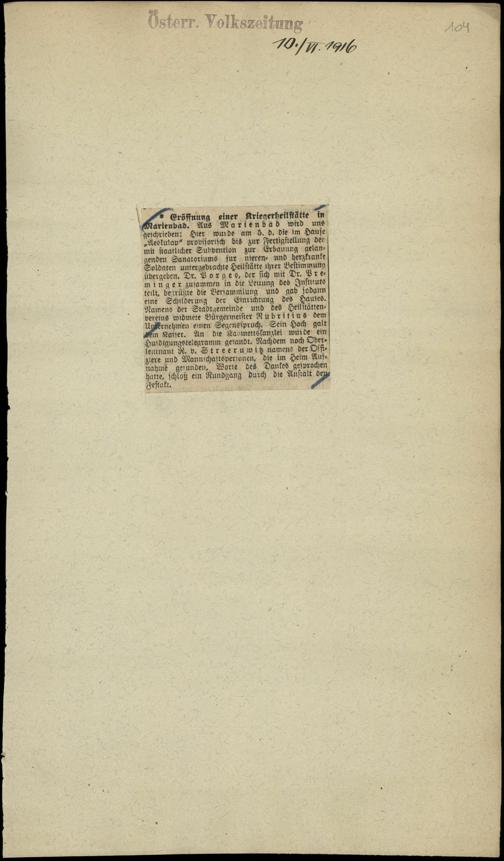 Österr. Volkszeitung
10./VI. 1916
104
* Eröffnung einer Kriegerheilstätte in
Marienbad. Aus Marienbad wird uns
geschrieben: Hier wurde am 5. d. die im Hause
„Aeskulap“ provisorisch bis zur Fertigstellung der
mit staatlicher Subvention zur Erbauung gelan-
genden Sanatoriums für nieren- und herzkranke
Soldaten untergebrachte Heilstätte ihrer Bestimmung
übergeben. Dr. Porges, der sich mit Dr. Pre-
minger zusammen in die Leitung des Instituts
teilt, begrüßte die Versammlung und gab sodann
eine Schilderung der Einrichtung des Hauses.
Namens der Stadtgemeinde und des Heilstätten-
vereins widmete Bürgermeister Rubritius dem
Unternehmen einen Segenspruch. Sein Hoch galt
dem Kaiser. An die Kabinettskanzlei wurde ein
Huldigungstelegramm gesandt. Nachdem noch Ober-
leutnant R. v. Streeruwitz namens der Offi-
ziere und Mannschaftspersonen, die im Heim Auf-
nahme gefunden, Worte des Dankes gesprochen
hatte, schloß ein Rundgang durch die Anstalt den
Festakt.